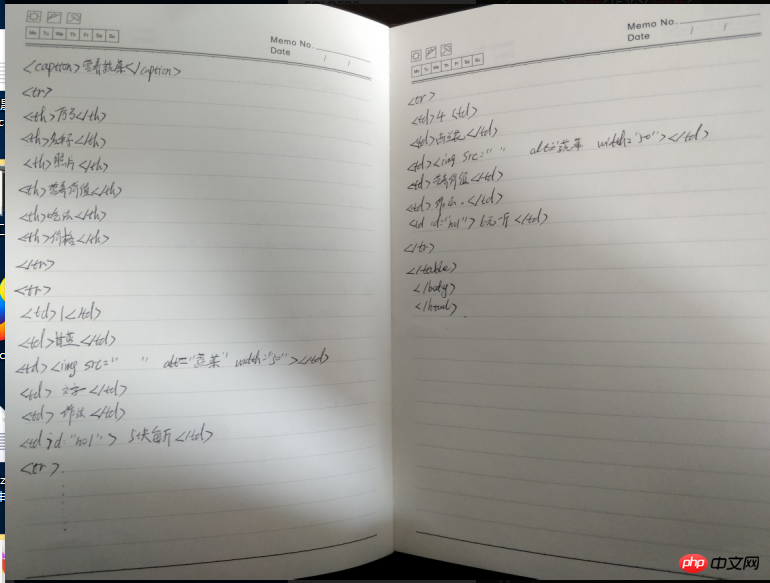 Mo Tu We Th Fr Sa Su
Memo No.
Date / /
<caption>营养蔬菜</caption>
<tr>
<th>序号</th>
<th>名称</th>
<th>照片</th>
<th>营养价值</th>
<th>吃法</th>
<th>价格</th>
</tr>
<tr>
<td>1</td>
<td>甘蓝</td>
<td><img src=" " alt="蔬菜" width="50"></td>
<td>文字</td>
<td>作法</td>
<td id="no1">5块每斤</td>
<tr>
Mo Tu We Th Fr Sa Su
Memo No.
Date / /
<tr>
<td>4<td>
<td>西兰花</td>
<td><img src=" " alt="蔬菜 width="50"></td>
<td>营养价值</td>
<td>作法.</td>
<td id="no1">6元一斤</td>
</tr>
</table>
</body>
</html>
php 中文网